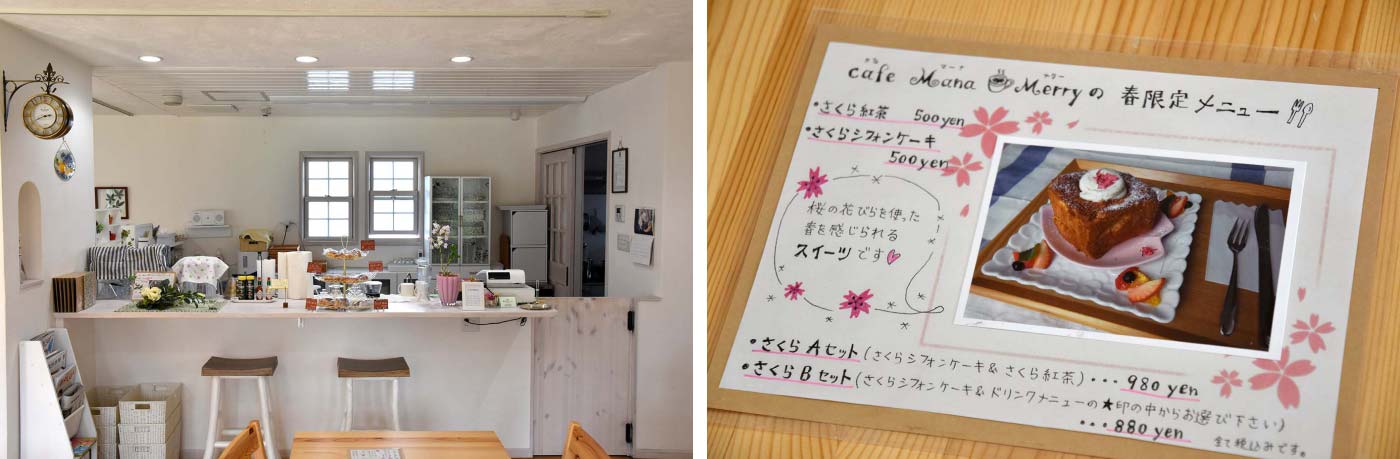 cafe Mana Merryの 春限定メニュー
カフェ マーナ メリー
・さくら紅茶 500yen
・さくらシフォンケーキ
500yen
桜の花びらを使った
春を感じられる
スイーツです
・さくら Aセット(さくらシフォンケーキ& さくら紅茶)・・・980yen
・さくら Bセット(さくらシフォンケーキ&ドリンクメニューの★印の中からお選び下さい)
・・・880yen
全て税込みです。